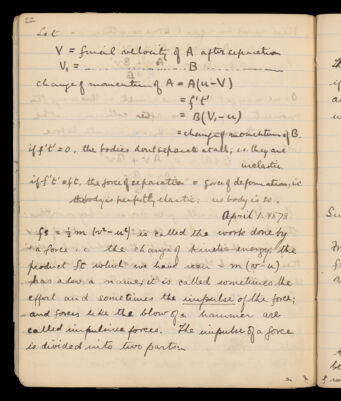 22
Let
V = final velocity of A after separation
V₁ = ,, ,, B ,,
change of momentum of A = A(u-V)
= f't'
= B(V₁-u)
= change of momentum of B.
if f't' = 0, the bodies dont separate at all, i.e. they are
inelastic
if f't' = ft, the force of separation = force of deformation, i.e.
the body is perfectly elastic; no body is so.
April 1. 1878
fs = ½ m (v² - u²) is called the work done by
a force i.e. the change of kinetic energy; the
product ft which we have seen = m (v-u)
has also a name; it is called sometimes the
effort and sometimes the impulse of the force;
and forces like the blow of a hammer are
called impulsive forces. The impulse of a force
is divided into two parts:-